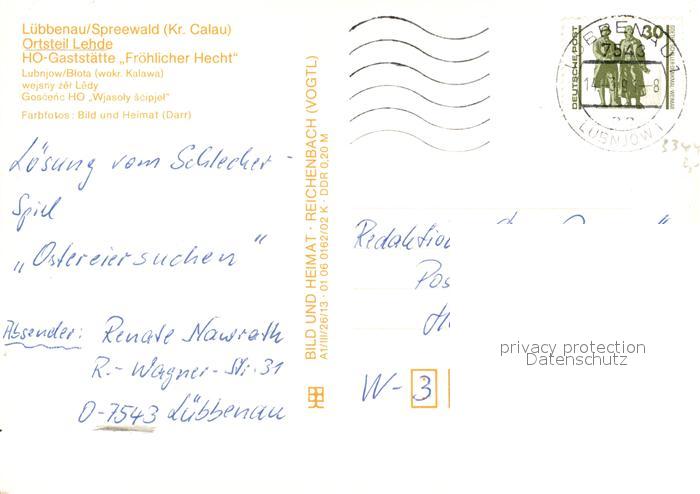 Lübbenau/Spreewald (Kr. Calau)
Ortsteil Lehde
HO-Gaststätte „Fröhlicher Hecht“
Lubnjow/Błota (wokr. Kalawa)
wejsny źěł Lědy
Gosćeńc HO „Wjasoły šćipjeł“
Farbfotos: Bild und Heimat (Darr)
Lösung vom Schlecker-
Spiel
„Ostereiersuchen“
Absender: Renate Nawrath
R.-Wagner-Str. 31
O-7543 Lübbenau
BILD UND HEIMAT · REICHENBACH (VOGTL)
A1/III/26/13 · 01 06 0162/02 K · DDR 0,20 M
DEUTSCHE POST
30
LÜBBENAU 1
7543
LUBNJOW 1
Redaktion
Pos
W-3
privacy protection
Datenschutz